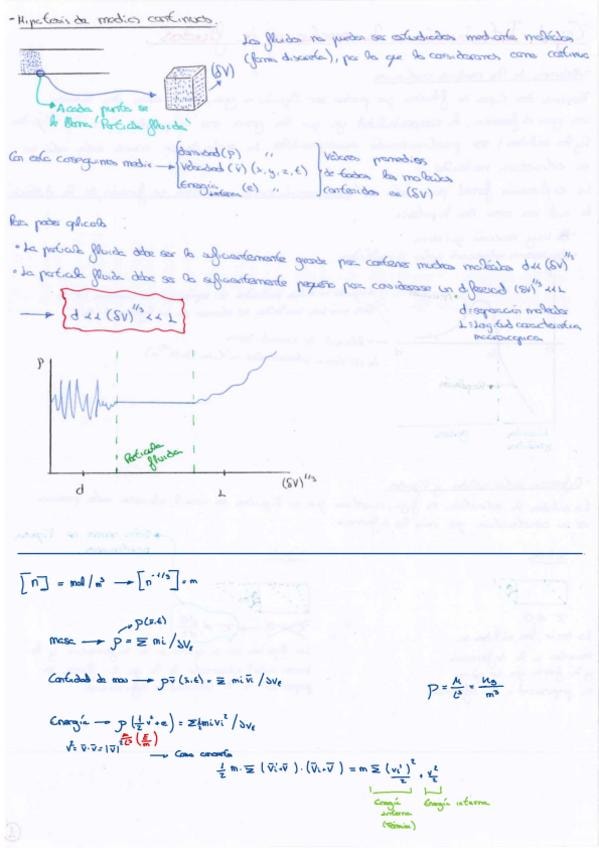 - Hipótesis de medios continuos.
Los fluidos no pueden ser estudiados mediante moléculas
(forma discreta), por lo que los consideramos como continuos
(δV)
A cada punto se
le llama 'Partícula fluida'
Con esto conseguimos medir → densidad (ρ) "
Velocidad (v̄) (x, y, z, t)
Energía interna (e) "
Valores promedios
de todas las moléculas
contenidas en (δV)
Para poder aplicarlo :
• La partícula fluida debe ser lo suficientemente grande para contener muchas moléculas d<<(δV)^1/3
• La partícula fluida debe ser lo suficientemente pequeña para considerarse un diferencial (δV)^1/3<<L
→ d << (δV)^1/3 << L
d: separación moléculas
L: longitud característica
macroscópica
ρ
Partícula
fluida
d L (δV)^1/3
[n] = mol/m³ → [n^-1/3] = m
ρ(x̄,t)
masa → ρ = Σ mi /δVe
Cantidad de mov → ρv̄(x̄,t) = Σ mi v̄i /δVe
ρ = M/L³ = kg/m³
Energía → ρ(½v²+e) = Σ½mivi²/δVe
v² = v̄·v̄ = |v̄|²
→ Caso concreto
½ m · Σ (v̄i'+v̄)·(v̄i'+v̄) = m Σ (vi')²/2 + v²/2
Energía
interna
(térmica)
Energía interna